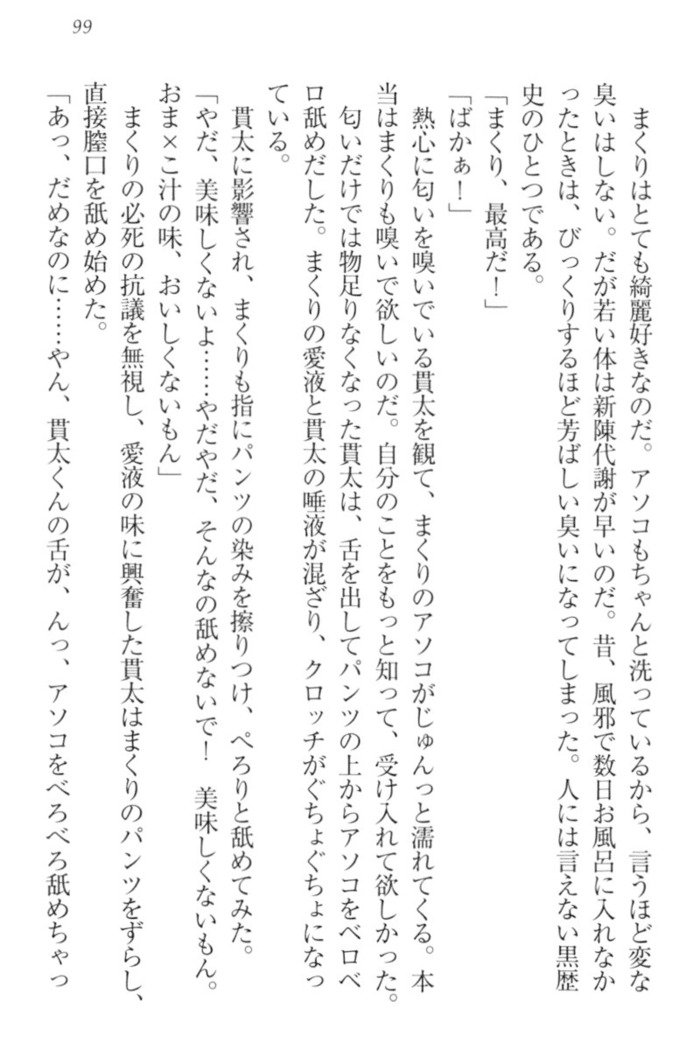 99
まくりはとても綺麗好きなのだ。アソコもちゃんと洗っているから、言うほど変な
臭いはしない。だが若い体は新陳代謝が早いのだ。昔、風邪で数日お風呂に入れなか
ったときは、びっくりするほど芳ばしい臭いになってしまった。人には言えない黒歴
史のひとつである。
「まくり、最高だ！」
「ばかぁ！」
熱心に匂いを嗅いでいる貫太を観て、まくりのアソコがじゅんっと濡れてくる。本
当はまくりも嗅いで欲しいのだ。自分のことをもっと知って、受け入れて欲しかった。
匂いだけでは物足りなくなった貫太は、舌を出してパンツの上からアソコをベロベ
ロ舐めだした。まくりの愛液と貫太の唾液が混ざり、クロッチがぐちょぐちょになっ
ている。
貫太に影響され、まくりも指にパンツの染みを擦りつけ、ぺろりと舐めてみた。
「やだ、美味しくないよ……やだやだ、そんなの舐めないで！　美味しくないもん。
おま×こ汁の味、おいしくないもん」
まくりの必死の抗議を無視し、愛液の味に興奮した貫太はまくりのパンツをずらし、
直接膣口を舐め始めた。
「あっ、だめなのに……やん、貫太くんの舌が、んっ、アソコをべろべろ舐めちゃっ